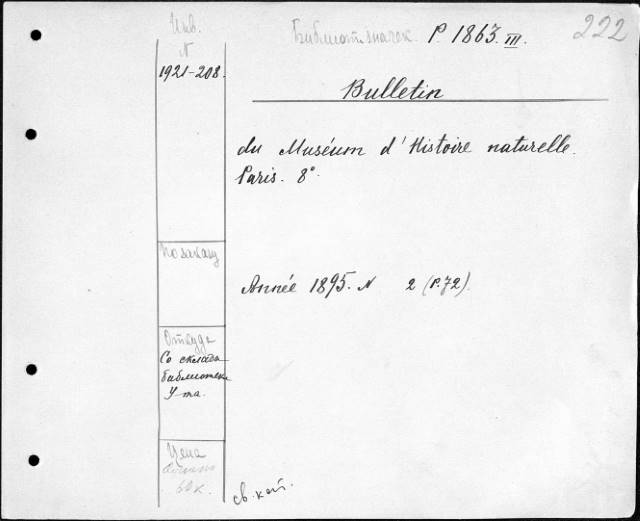 Инв.
N
1921-208.
Библіот. значек. P. 1863. III.
222
Bulletin
du Muséum d'Histoire naturelle.
Paris. 8°.
По заказу
Année 1895. N 2 (P. 72).
Откуда
Со склада
библиотеки
У-та.
Цена
60 к.
св. кат.